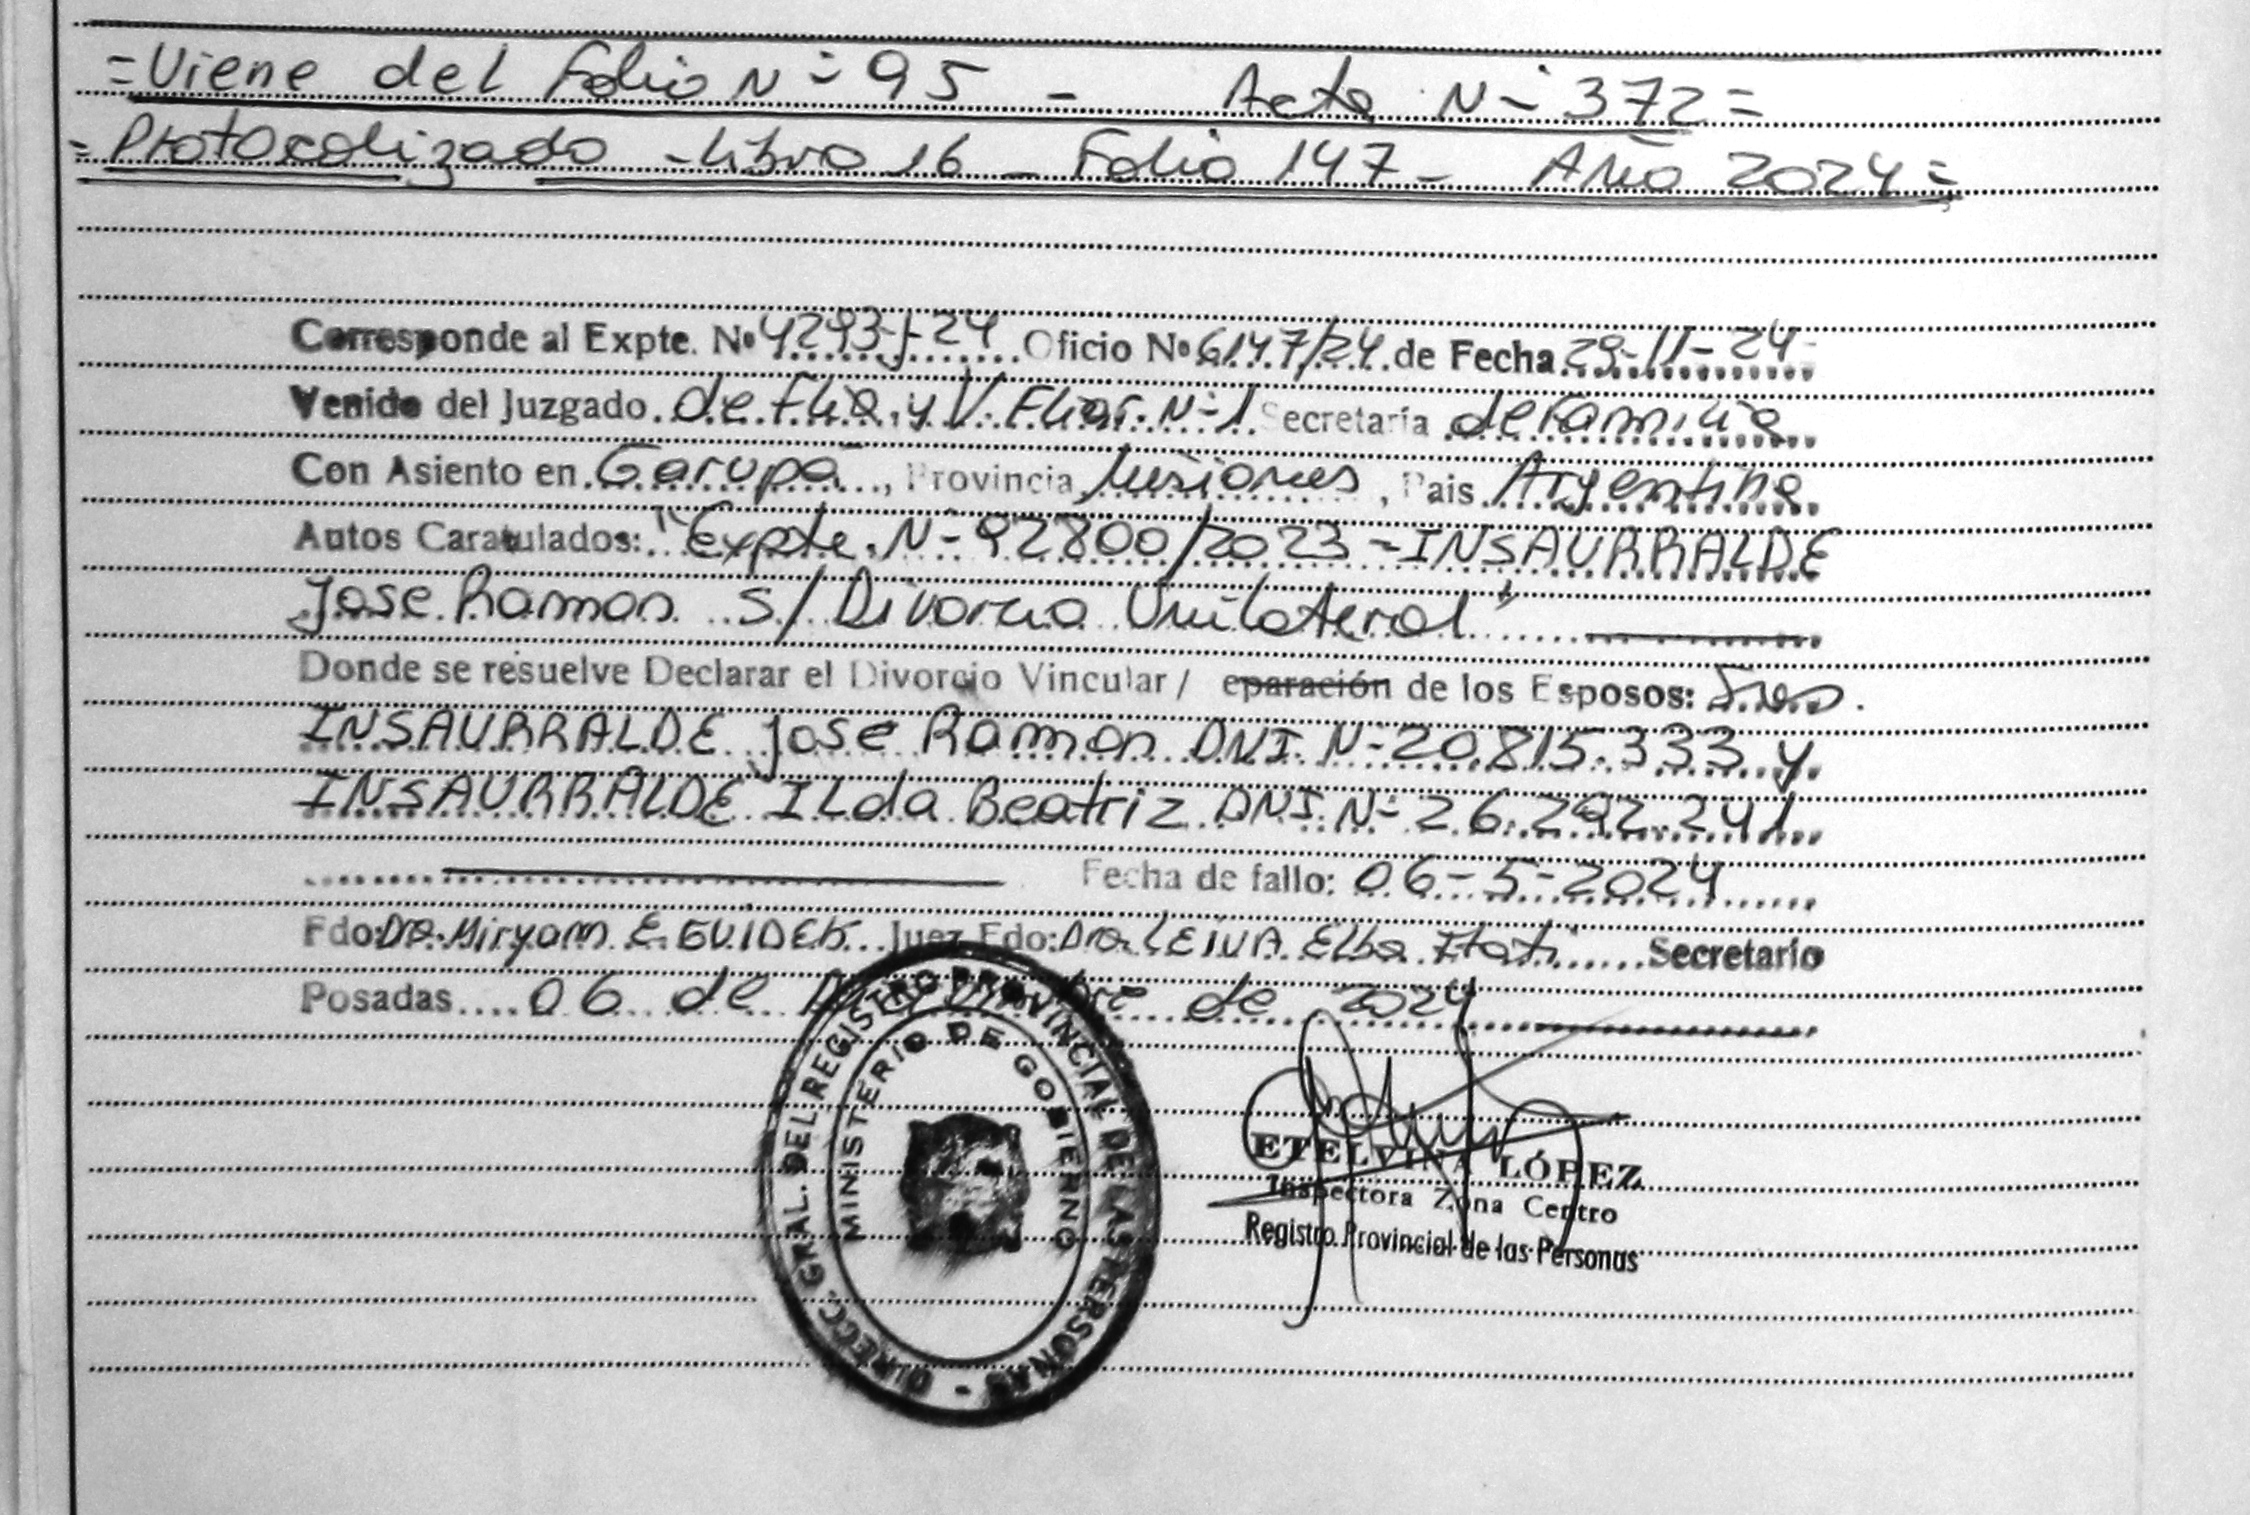 =Viene del Folio N-º 95 - Acta N-º 372=
=Protocolizado - Libro 16 - Folio 147 - Año 2024=
Corresponde al Expte. Nº 4293-J-24 Oficio Nº 6147/24 de Fecha 29-11-24-
Venido del Juzgado de Flia. y V. Fliar. N-º 1 Secretaría de Familia
Con Asiento en Garupá, Provincia Misiones, Pais Argentina
Autos Caratulados: "Expte. N-º 92800/2023 - INSAURRALDE
Jose Ramon S/ Divorcio Unilateral"
Donde se resuelve Declarar el Divorcio Vincular / eparación de los Esposos: Sres.
INSAURRALDE Jose Ramon DNI N-º 20.815.333 y
INSAURRALDE ILda Beatriz DNI N-º 26.292.241
Fecha de fallo: 06-5-2024
Fdo: Dra. Miryam E. GUIDEK Juez Fdo: Dra. LEIVA Elba Itati Secretario
Posadas 06 de de 2024
DIRECC. GRAL. DEL REGISTRO PROVINCIAL DE LAS PERSONAS -
MINISTERIO DE GOBIERNO
ETELVINA LÓPEZ
Inspectora Zona Centro
Registro Provincial de las Personas